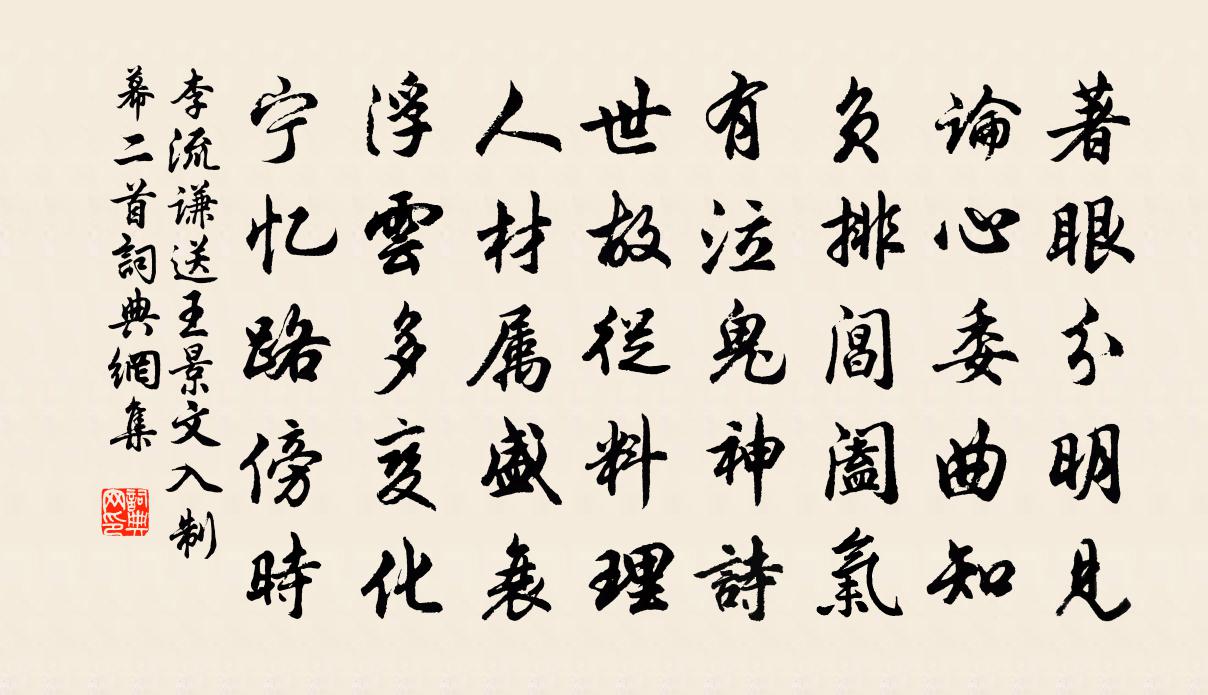 著眼分明見
論心委曲知
负排閶闔氣
有泣鬼神詩
世故從料理
人材属盛衰
浮雲多变化
宁忆路傍時
李流谦送王景文入制
幕二首詞典網集
詞典
网印